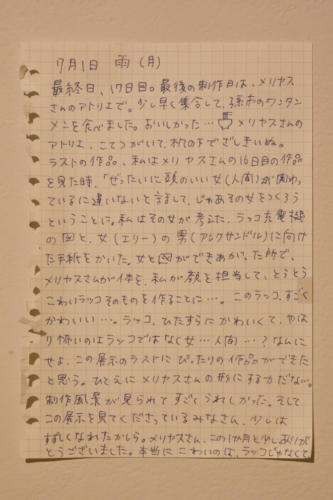 7月1日 雨 (月)
最終日、17日目。最後の制作日は、メリヤス
さんのアトリエで。少し早く集合して、孫市のワンタン
メンを食べました。おいしかった… メリヤスさんの
アトリエ、こたつがついて、わしのまでござしきいぬ。
ラストの作品、私はメリヤスさんの16日目の作品
を見た時、「ぜったいに頭のいい女(人間)が関わっ
ているに違いない」と言まして、じゃあその女をつくろう
ということに。私はその女が考えた、ラッコ充電機
の図と、女(エリー)の男(アレクサンドル)に向け
た手紙をかいた。女と図ができあがった所で、
メリヤスさんが体を、私が顔を担当して、とうとう
こわいラッコそのものを作ることに…。このラッコ、すごく
かわいい…。ラッコ、ひたすらにかわいくて、やは
り怖いのはラッコではなく女…人間…?なんに
せよ、この展示のラストにぴったりの作品ができた
と思う。ひとえにメリヤスさんの形にする力だない。
制作風景が見られてすごくうれしかった。そして
この展示を見てくださっているみなさん、少しは
すずしくなれたかしら。メリヤスさん、この1か月と少しありが
とうございました。本当にこわいのは、ラッコじゃなくて